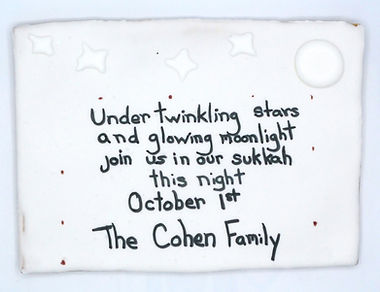 Under twinkling stars
and glowing moonlight
join us in our sukkah
this night
October 1st
The Cohen Family